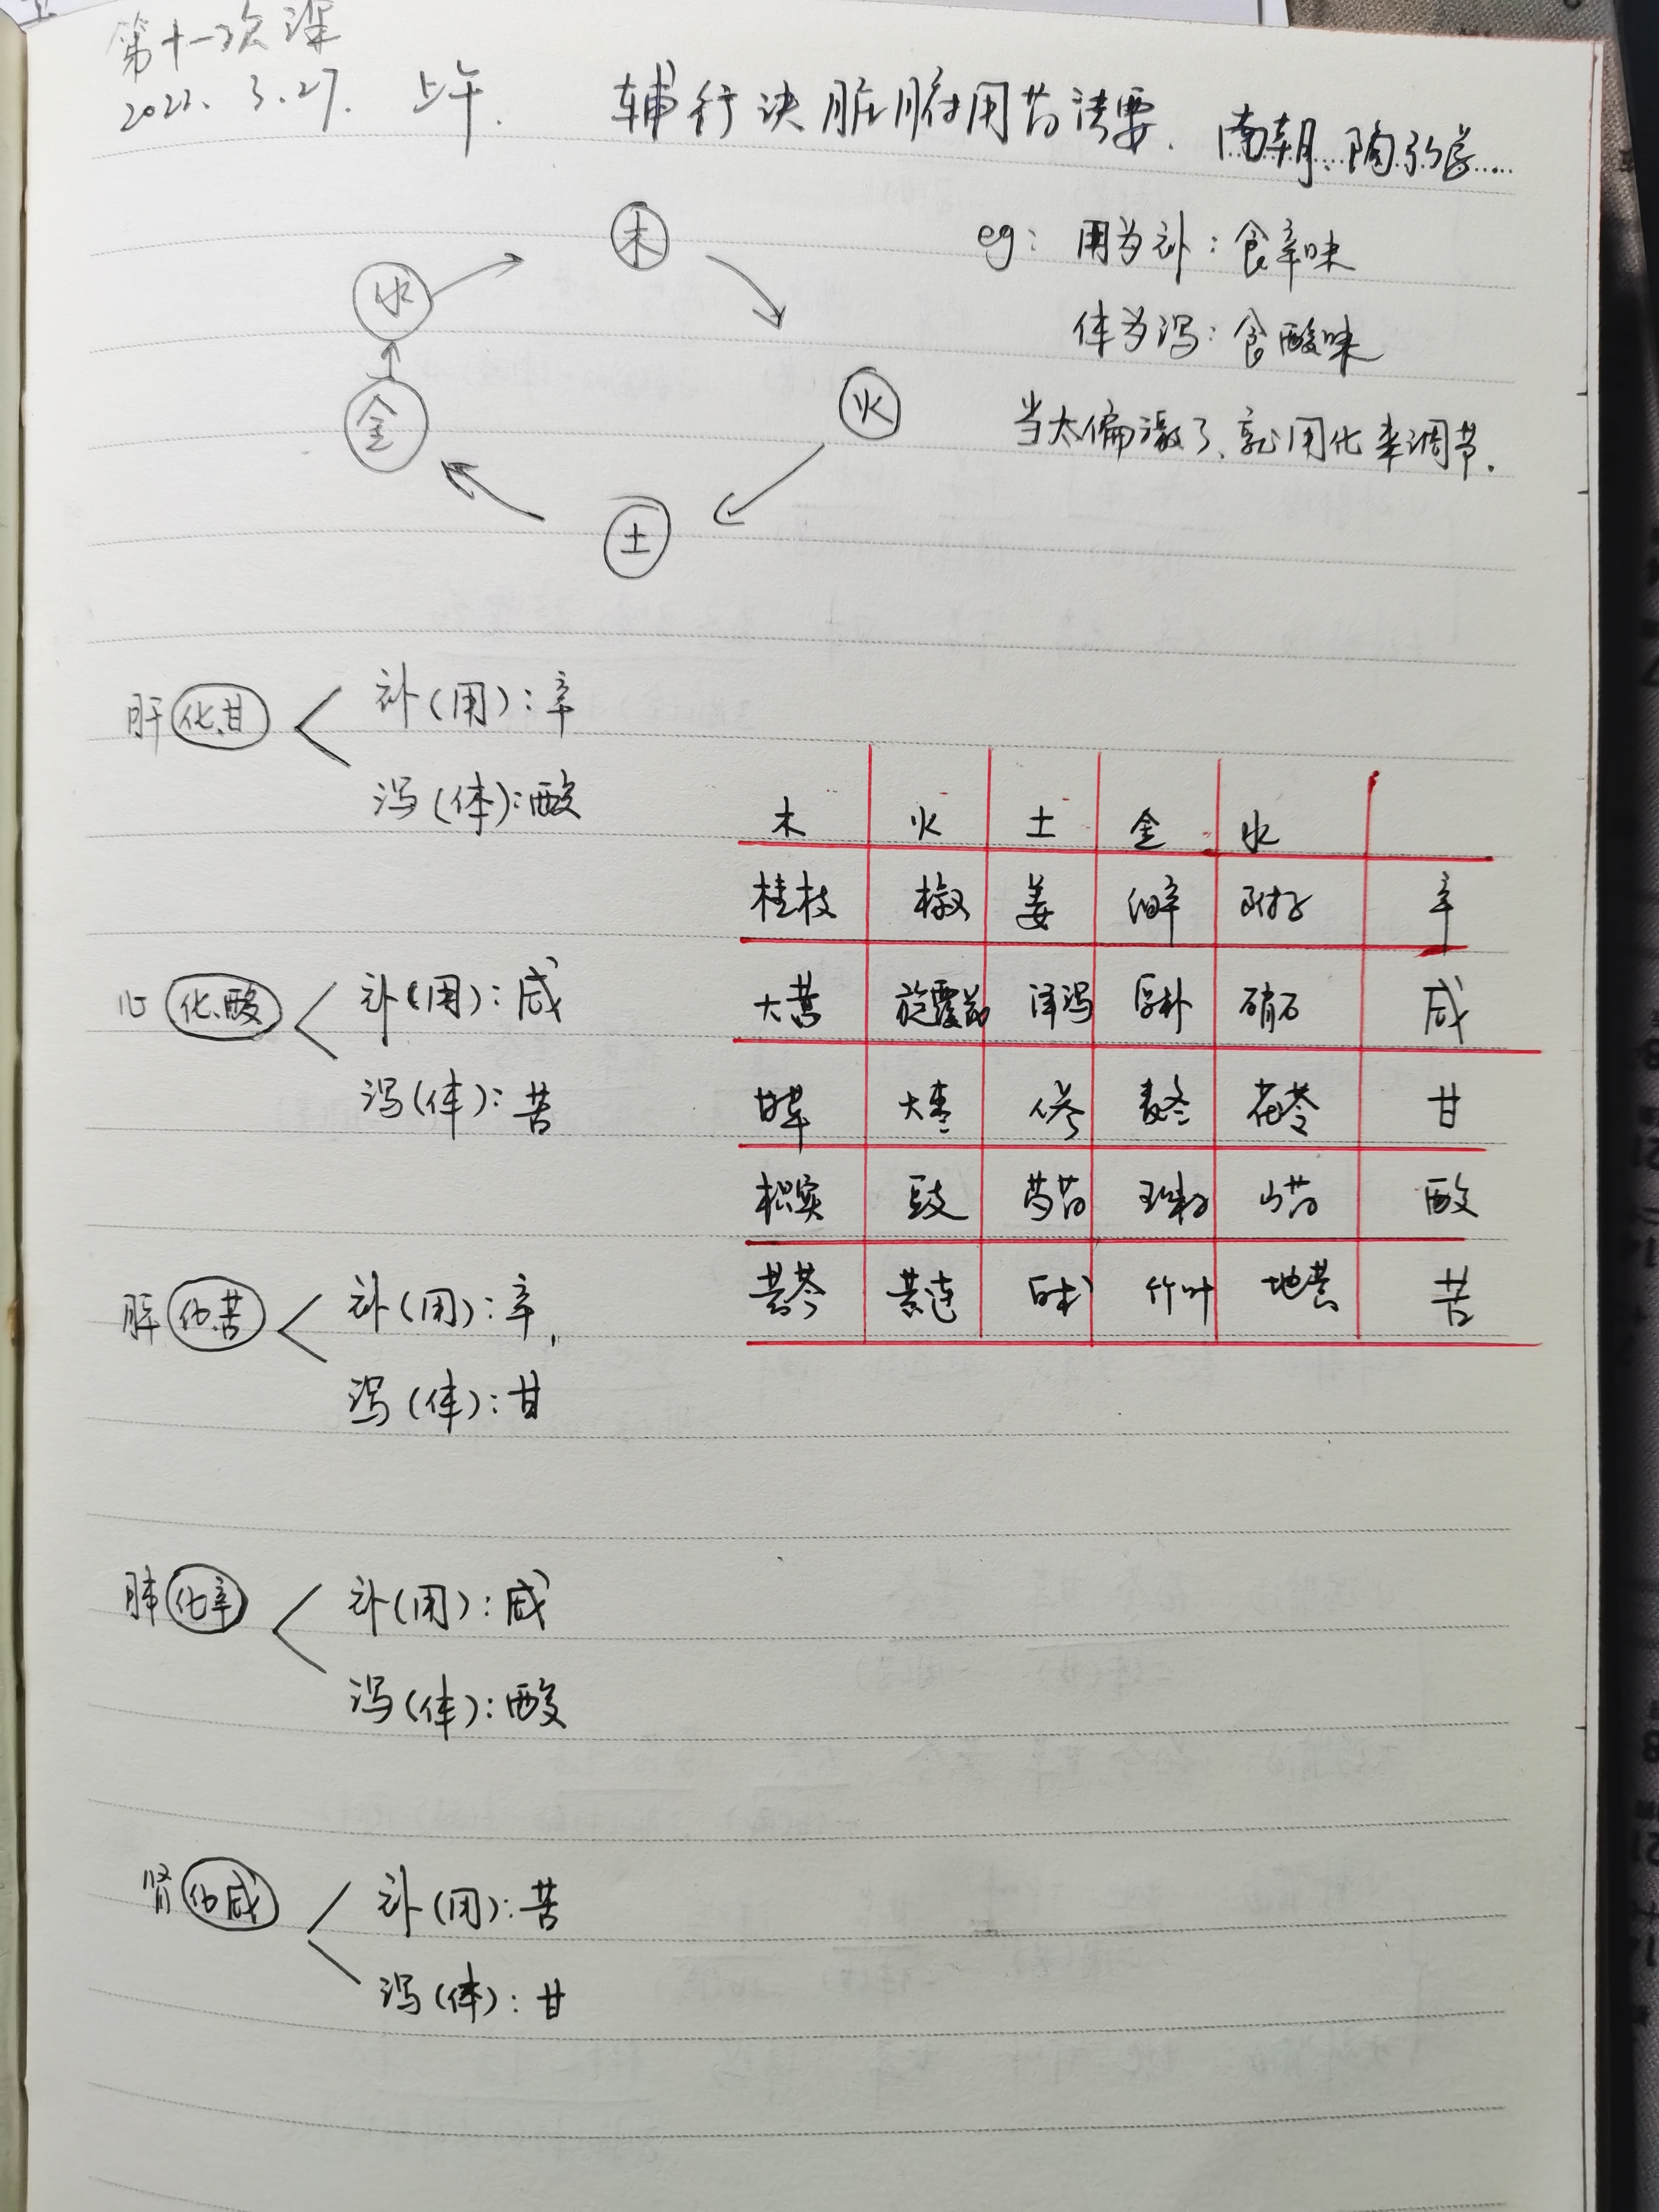 第十一次课
2022. 3.27. 上午.
辅行诀脏腑用药法要. 南朝.陶弘景
木
水
火
金
土
eg: 用为补: 食辛味
体为泻: 食酸味
当太偏激了、就用化来调节.
肝 化甘
补(用): 辛
泻(体): 酸
心 化酸
补(用): 咸
泻(体): 苦
化苦
补(用): 辛,
泻(体): 甘
肺 化辛
补(用): 咸
泻(体): 酸
肾 化咸
补(用): 苦
泻(体): 甘
木 火 土 金 水
桂枝 椒 姜 细辛 附子 辛
大黄 旋覆花 泽泻 厚朴 硝石 咸
甘草 大枣 人参 麦冬 茯苓 甘
枳实 豉 芍药 山药 酸
黄芩 黄连 白术 竹叶 地黄 苦